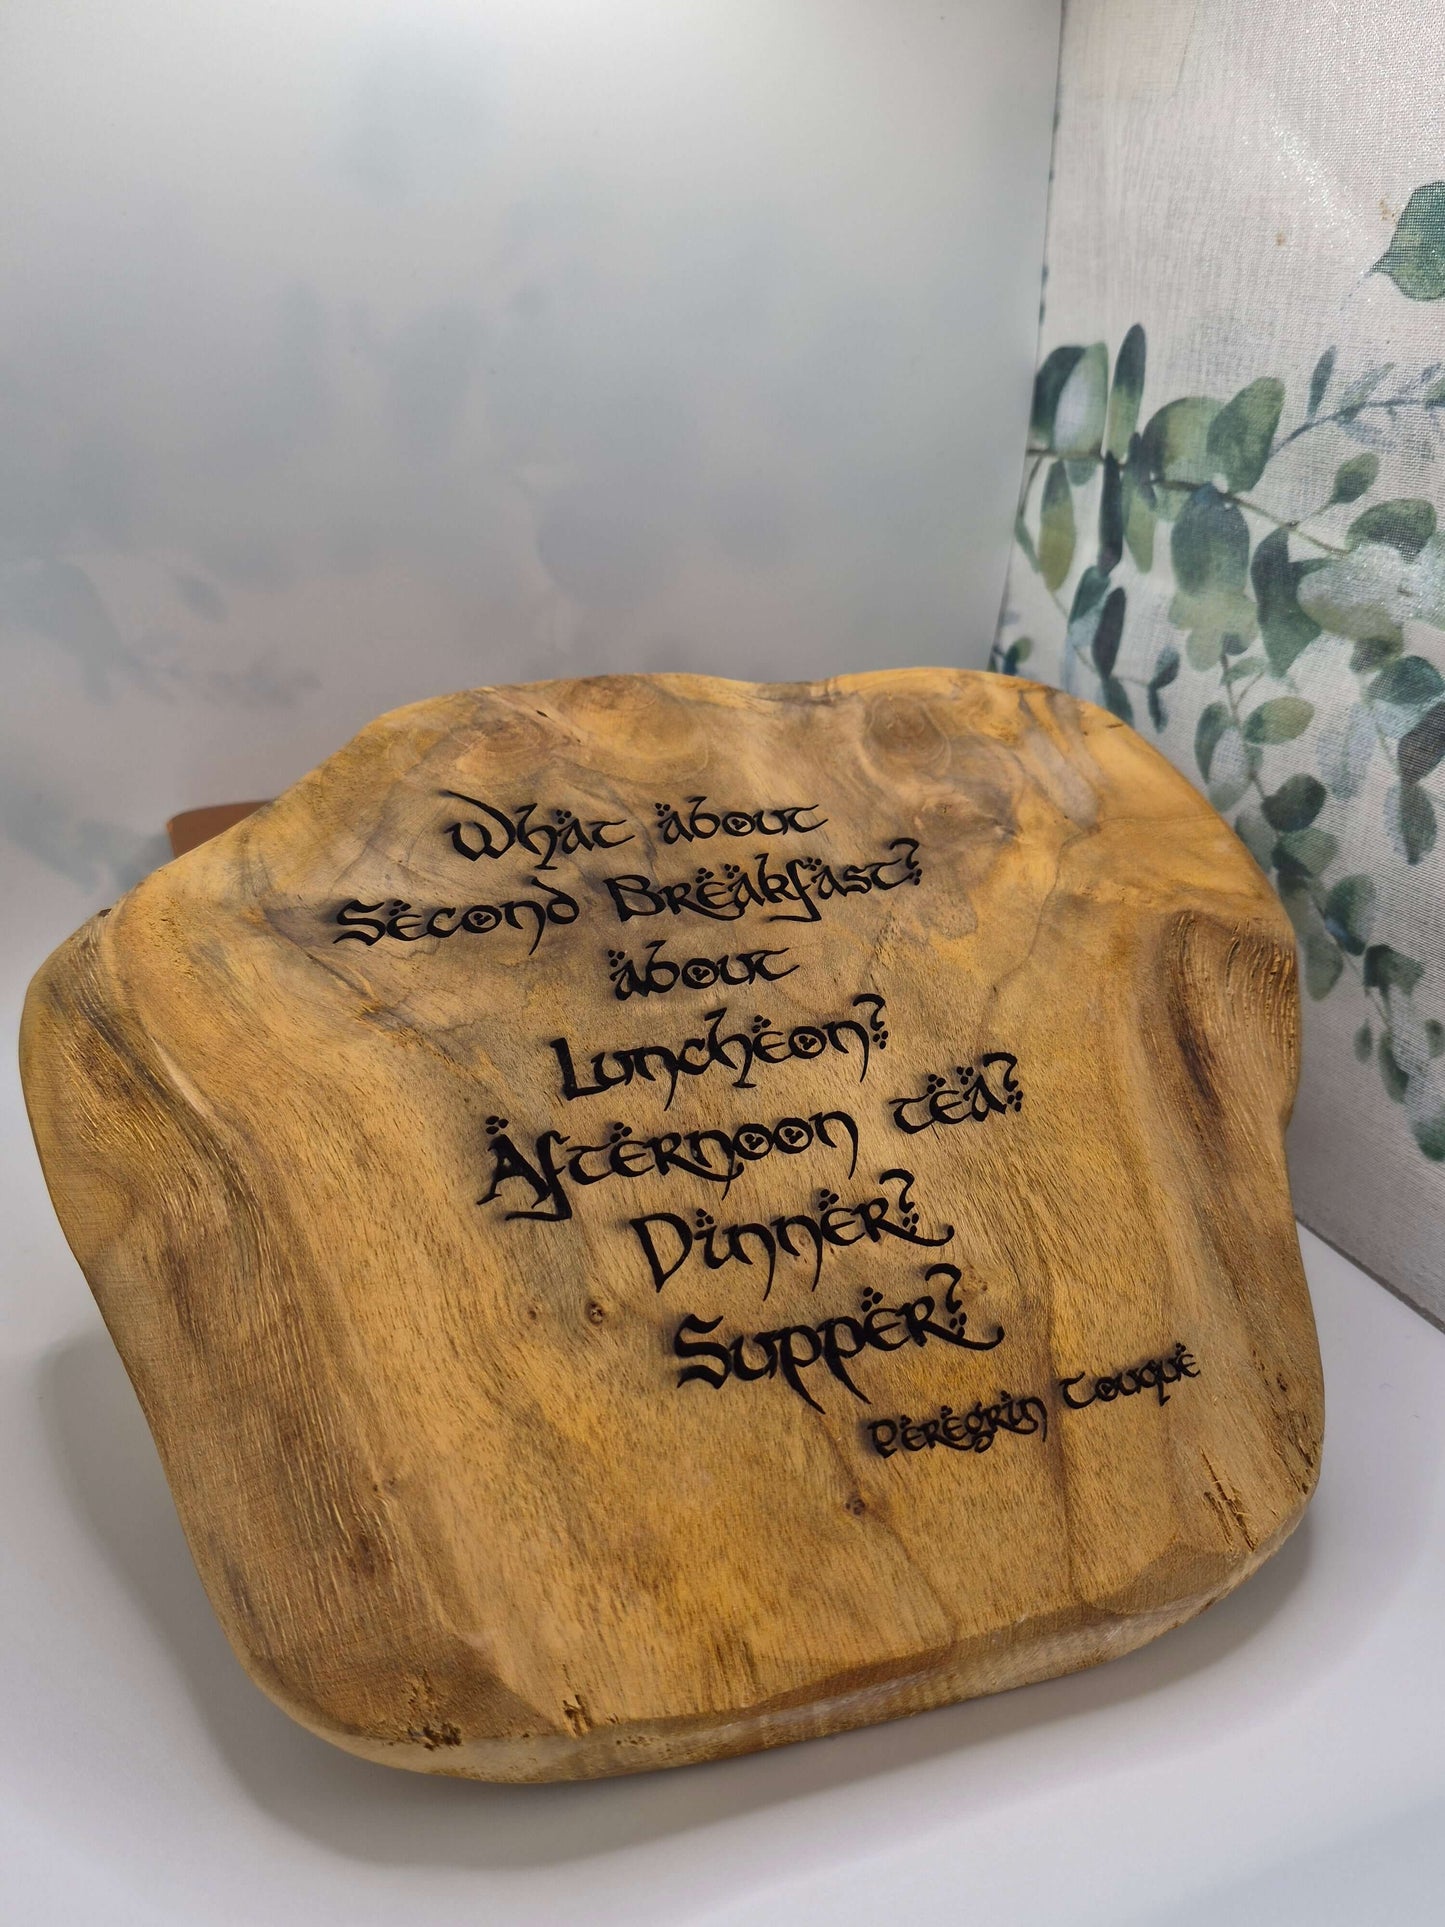 What about
Second Breakfast?
about
Luncheon?
Afternoon tea?
Dinner?
Supper?
Peregrin Touque